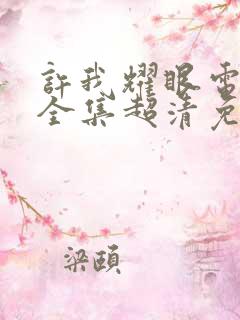 許我耀眼電
全集超清免
梁頤